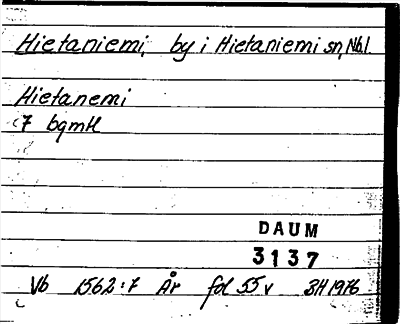 Hietaniemi, by i Hietaniemi sn, Nbl.
Hietanemi
7 bgmH
DAUM
3137
Vb 1562:7 År fol 55 v BH 1976